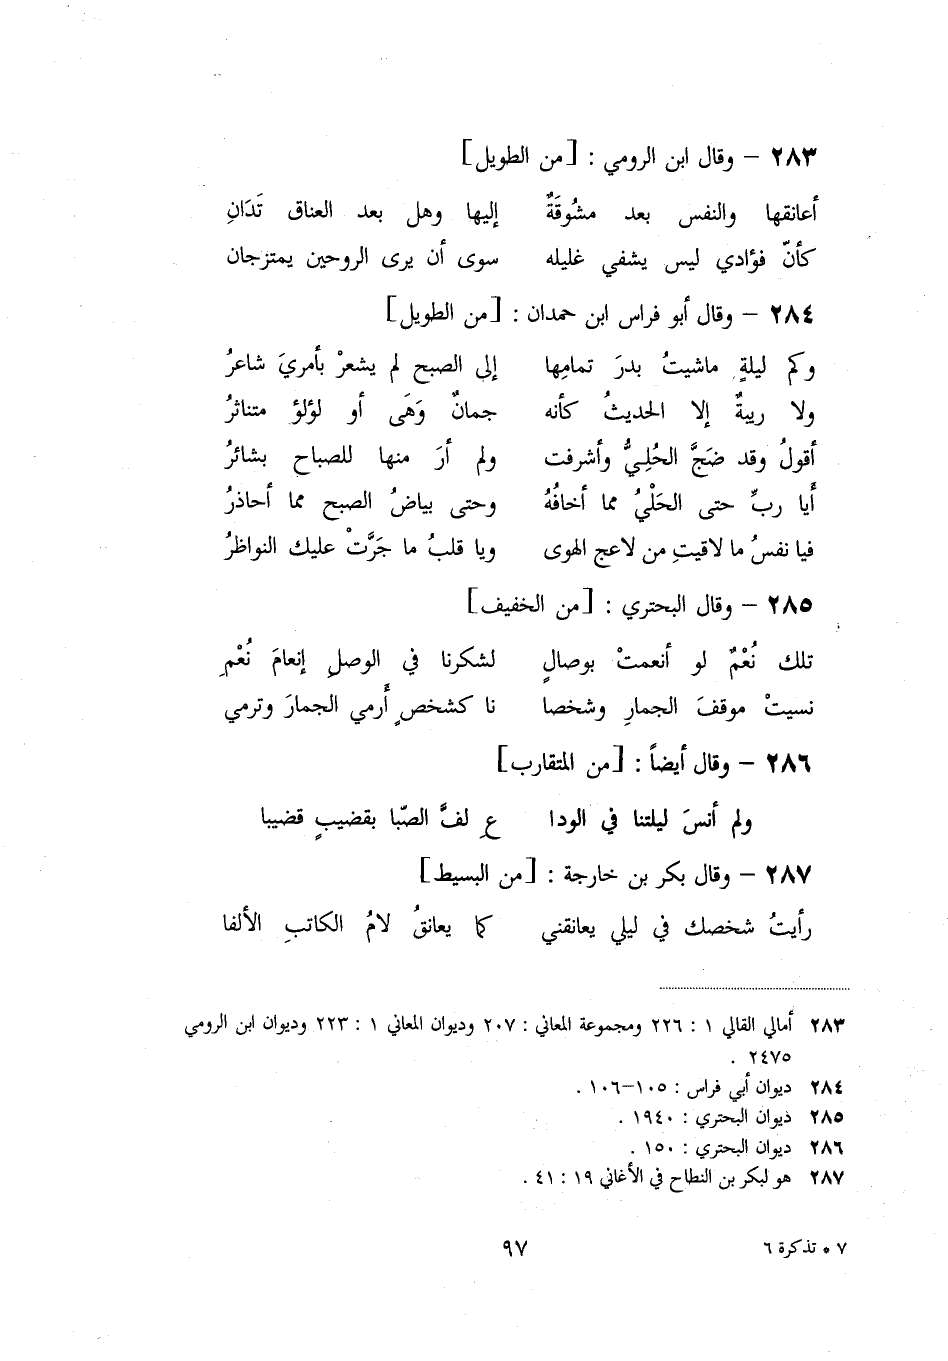 ٢٨٣ – وقال ابن الرومي : [من الطويل]
أعانقها والنفس بعد مشُوقَةٌ إليها وهل بعد العناق تَدَانِ
كأنّ فؤادي ليس يشفي غليله سوى أن يرى الروحين يمتزجان
٢٨٤ – وقال أبو فراس ابن حمدان : [من الطويل]
وكم ليلةٍ ماشيتُ بدرَ تمامِها إلى الصبح لم يشعرْ بأمريَ شاعرُ
ولا ريبةٌ إلا الحديثُ كأنه جمانٌ وَهَى أو لؤلؤ متناثرُ
أقولُ وقد ضَجَّ الحُلِيُّ وأشرفت ولم أرَ منها للصباح بشائرُ
أَيا ربِّ حتى الحَلْيُ مما أخافُهُ وحتى بياضُ الصبح مما أحاذرُ
فيا نفسُ ما لاقيتِ من لاعج الهوى ويا قلبُ ما جَرَّتْ عليك النواظرُ
٢٨٥ – وقال البحتري : [من الخفيف]
تلك نُعْمٌ لو أنعمتْ بوصالٍ لشكرنا في الوصلِ إنعامَ نُعْمِ
نسيتْ موقفَ الجمارِ وشخصا نا كشخصٍ أَرمي الجمارَ وترمي
٢٨٦ – وقال أيضاً : [من المتقارب]
ولم أنسَ ليلتنا في الودا عِ لفَّ الصّبا بقضيبٍ قضيبا
٢٨٧ – وقال بكر بن خارجة : [من البسيط]
رأيتُ شخصك في ليلي يعانقني كما يعانقُ لامُ الكاتبِ الألفا
٢٨٣ أمالي القالي ١ : ٢٢٦ ومجموعة المعاني : ٢٠٧ وديوان المعاني ١ : ٢٢٣ وديوان ابن الرومي
٢٤٧٥ .
٢٨٤ ديوان أبي فراس : ١٠٥–١٠٦ .
٢٨٥ ديوان البحتري : ١٩٤٠ .
٢٨٦ ديوان البحتري : ١٥٠ .
٢٨٧ هو لبكر بن النطاح في الأغاني ١٩ : ٤١ .
٧ * تذكرة ٦ ٩٧